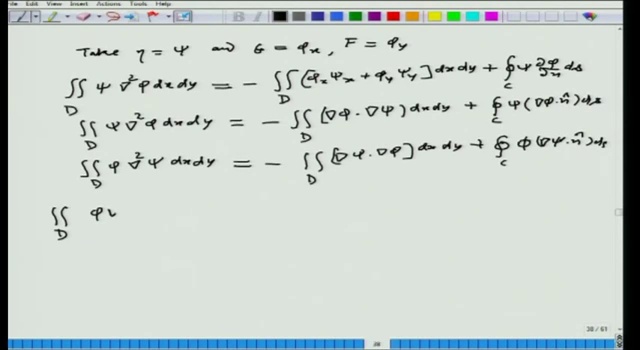 File Edit View Insert Actions Tools Help
Take η = Ψ and G = φₓ, F = φ_y
∬_D Ψ ∇²φ dx dy = - ∬_D [φₓΨₓ + φ_yΨ_y] dx dy + ∮_C Ψ ∂φ/∂n ds
∬_D Ψ ∇²φ dx dy = - ∬_D (∇φ · ∇Ψ) dx dy + ∮_C Ψ (∇φ · n̂) ds
∬_D φ ∇²Ψ dx dy = - ∬_D [∇Ψ · ∇φ] dx dy + ∮_C φ (∇Ψ · n̂) ds
∬_D φ
38 / 61
38